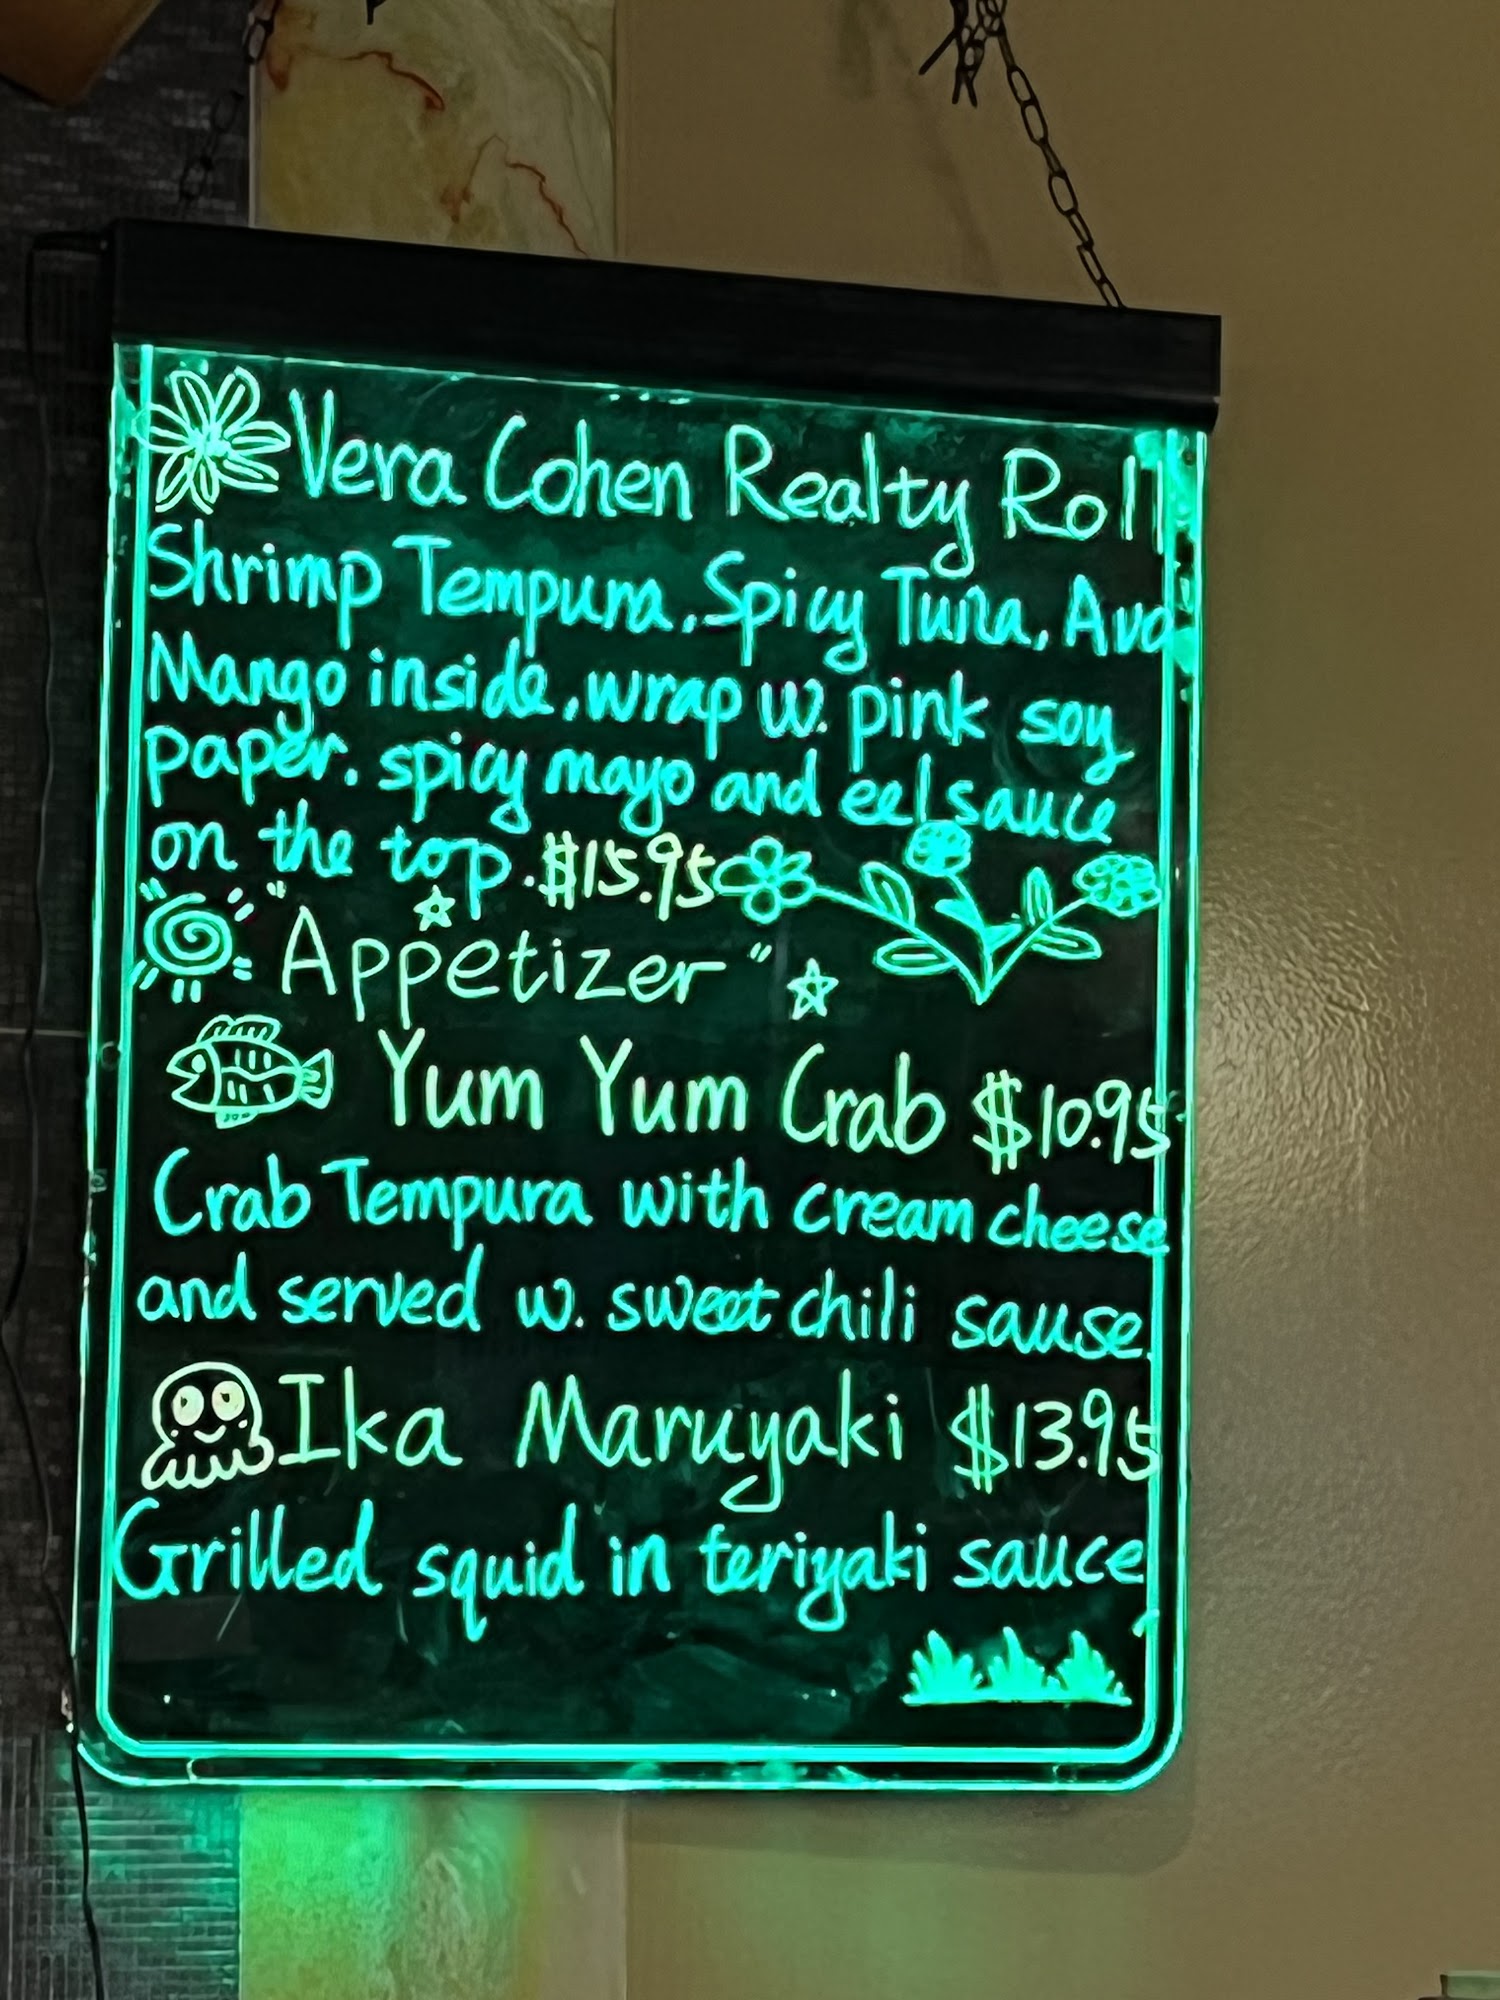 Vera Cohen Realty Roll
Shrimp Tempura, Spicy Tuna, Avo
Mango inside, wrap w. pink soy
paper. spicy mayo and eel sauce
on the top. $15.95
"Appetizer"
Yum Yum Crab $10.95
Crab Tempura with cream cheese
and served w. sweet chili sause.
Ika Maruyaki $13.95
Grilled squid in teriyaki sauce